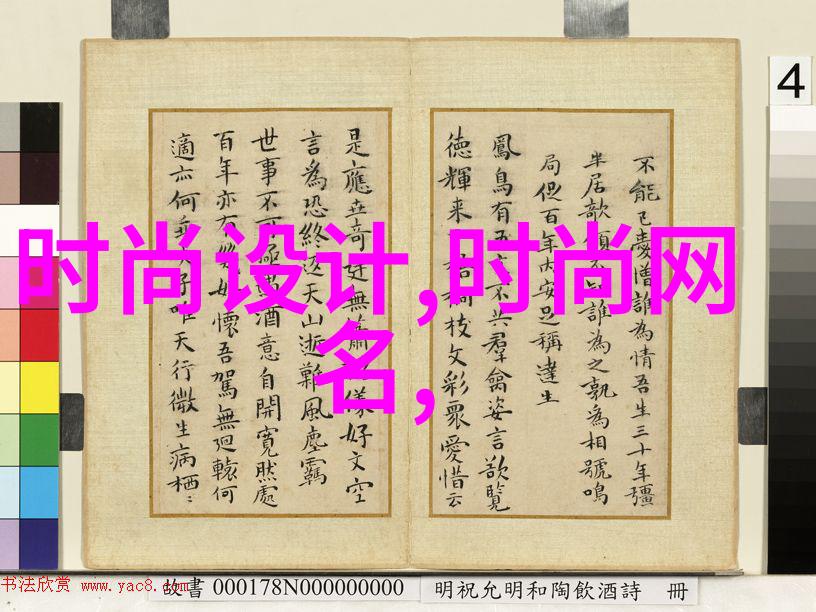 不能已愛憎誰為情吾生三十年彊
半居誰為之孰為相號鳴
局促百年內安足稱達生
鳳鳥有不共羣禽姿言欲覽
德輝来枝文彩眾愛惜云
是應奇無好文空
言為恐終返天山逝難風塵羈
世事不可極酒意自開寬然處
百年亦有懷吾駕無迴轅何
適亦何唯天行微生病栖〻
时尚设计,时尚网
名,
4
书法欣赏 www.yac8.com
故書 000178N000000000
明祝允明和陶飲酒詩 冊